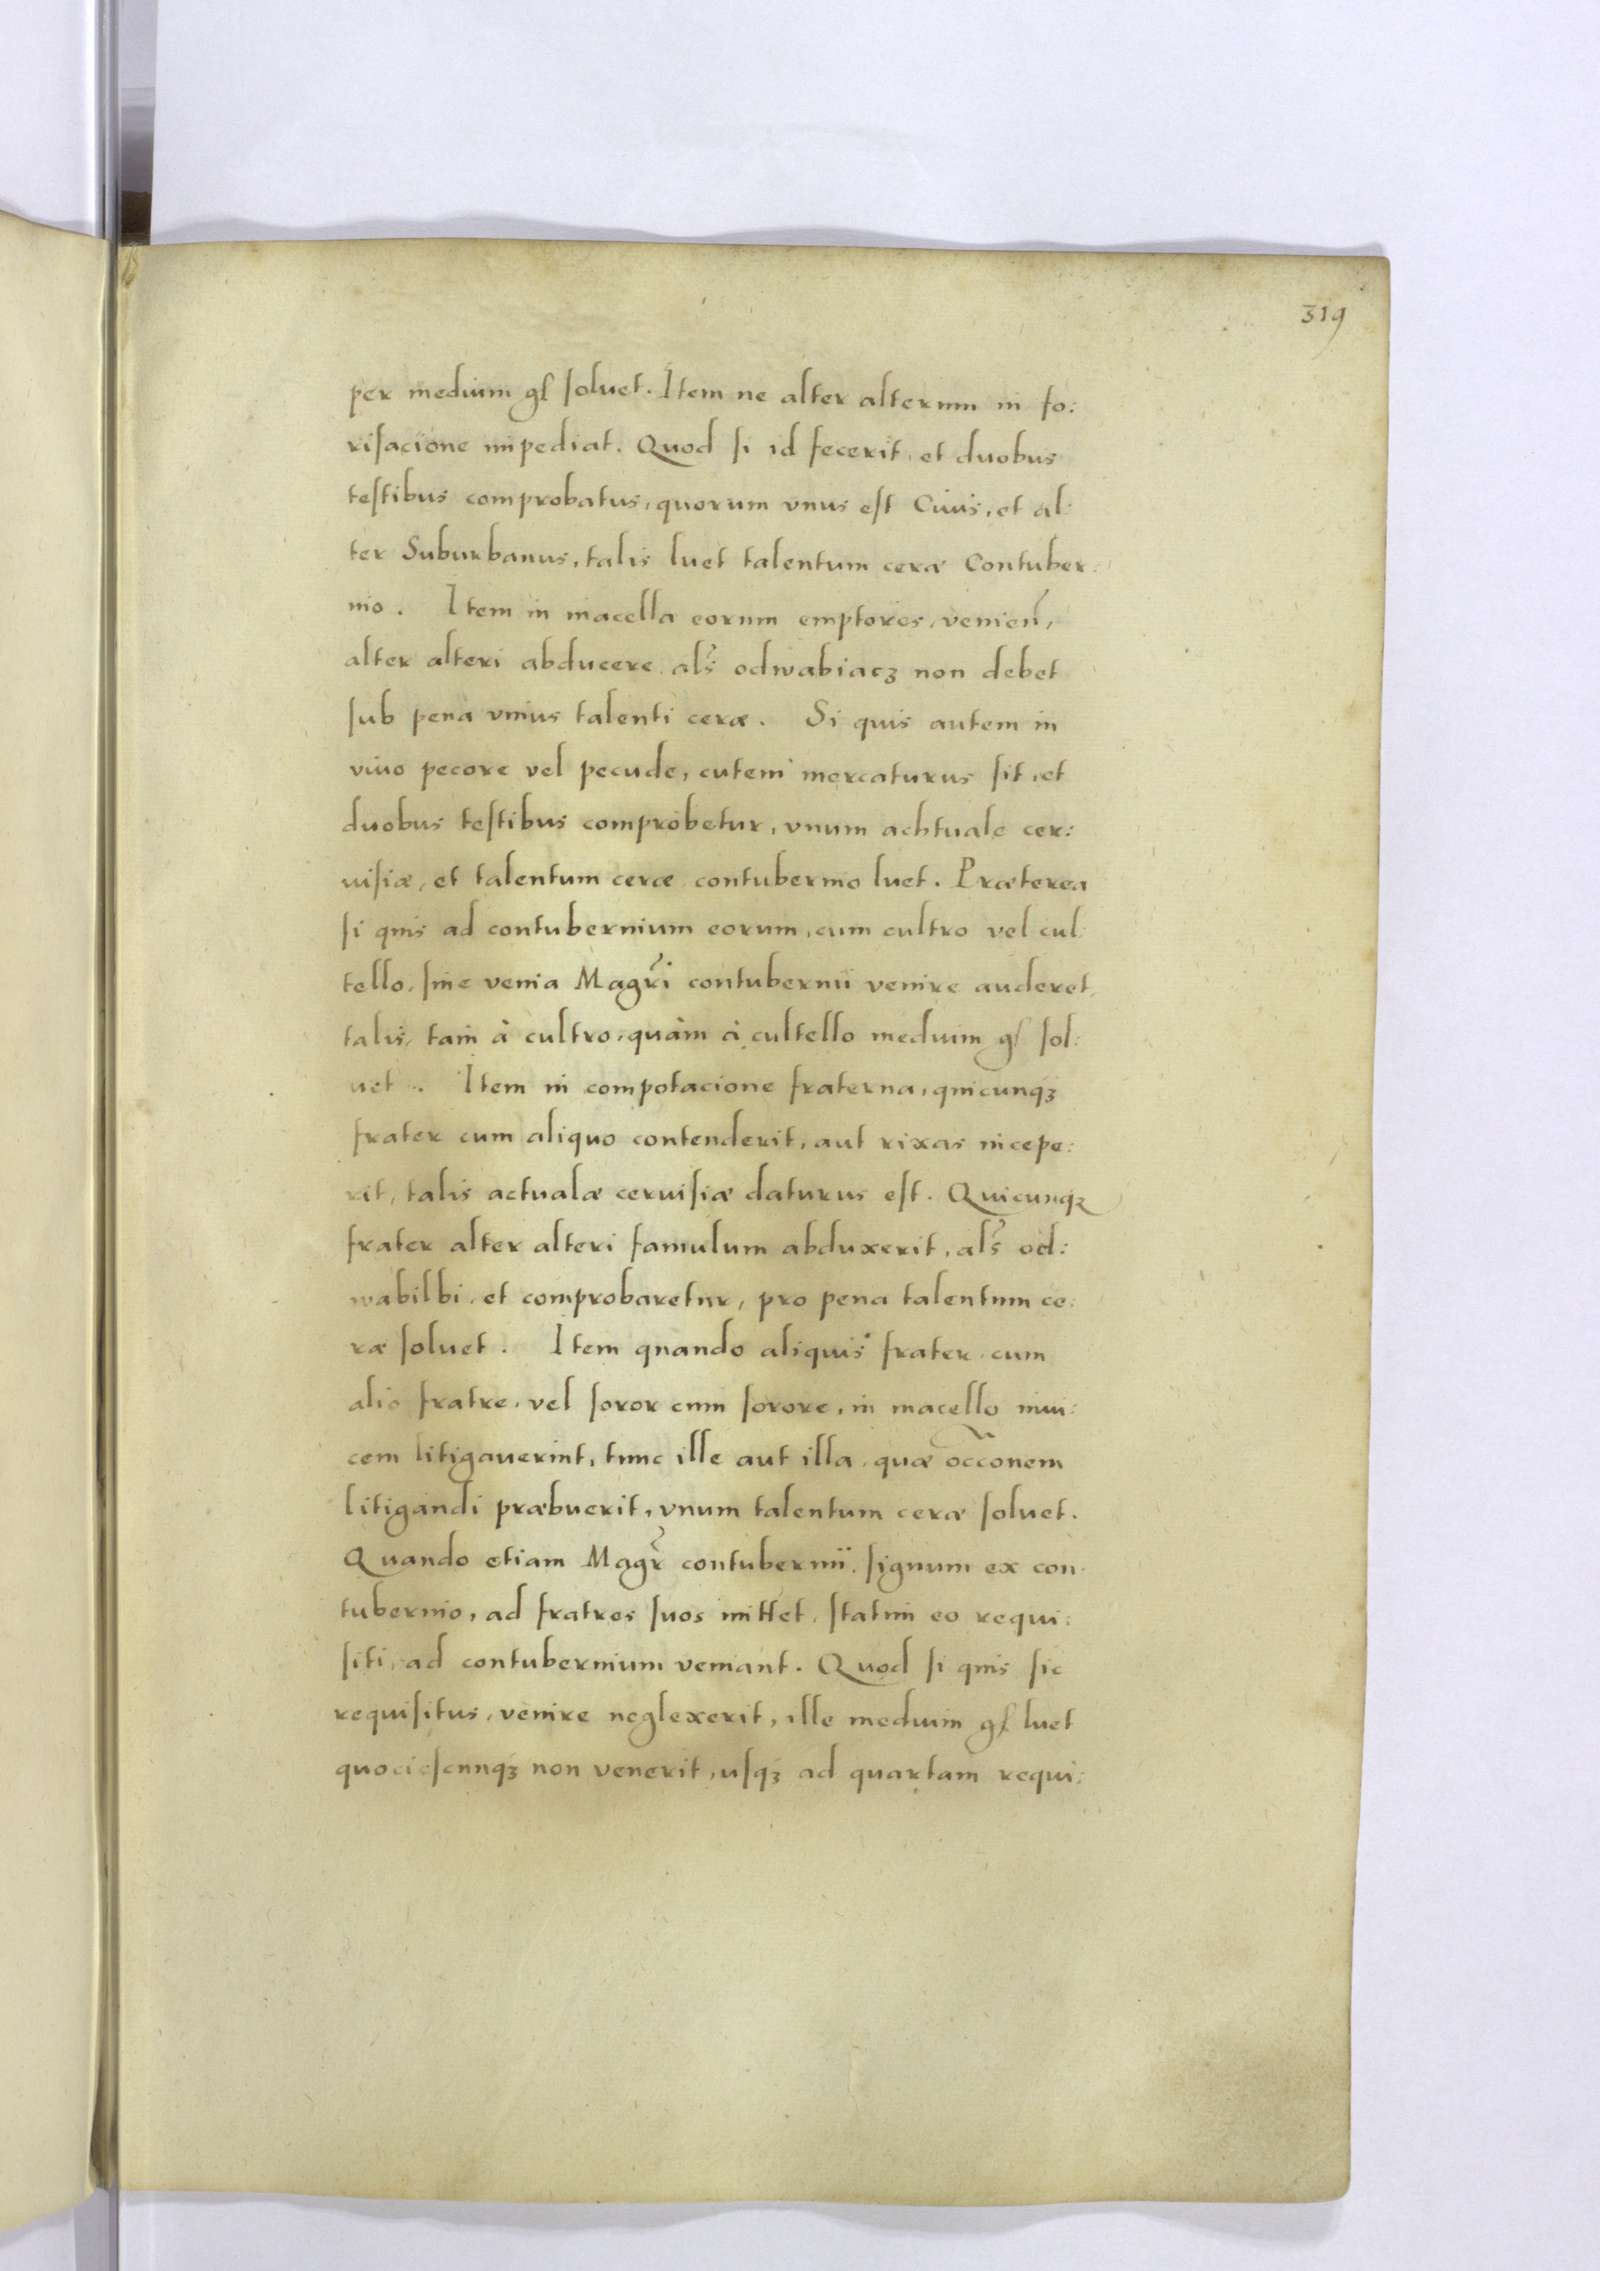 319
per medium gſ ſoluet. Item ne alter alterum in fo:
riſacione impediat. Quod ſi id fecerit, et duobus
teſtibus comprobatus, quorum vnus eſt Ciuis, et al:
ter Suburbanus, talis luet talentum ceræ Contuber:
nio. Item in macella eorum emptores, venien̄,
alter alteri abducere, als̃ odwabiacz non debet
ſub pena vnius talenti ceræ. Si quis autem in
viuo pecore vel pecude, cutem mercaturus ſit, et
duobus teſtibus comprobetur, vnum achtuale cer:
uiſiæ, et talentum ceræ contubernio luet. Præterea
ſi quis ad contubernium eorum, cum cultro vel cul:
tello, ſine venia Magr̃i contubernii venire auderet,
talis, tam à cultro, quàm à cultello medium gſ ſol:
uet. Item in compotacione fraterna, quicunqꝫ
frater cum aliquo contenderit, aut rixas incepe:
rit, talis actualæ ceruiſiæ daturus eſt. Quicunqꝫ
frater alter alteri famulum abduxerit, als̃ od:
wabilbi, et comprobaretur, pro pena talentum ce:
ræ ſoluet. Item quando aliquis frater cum
alio fratre, vel ſoror cum ſorore, in macello inui:
cem litigauerint, tunc ille aut illa, quæ occ̃onem
litigandi præbuerit, vnum talentum ceræ ſoluet.
Quando etiam Magr̃ contubernii, ſignum ex con:
tubernio, ad fratres ſuos mittet, ſtatim eo requi:
ſiti, ad contubernium veniant. Quod ſi quis ſic
requiſitus, venire neglexerit, ille medium gſ luet
quocieſcunqꝫ non venerit, uſqꝫ ad quartam requi: